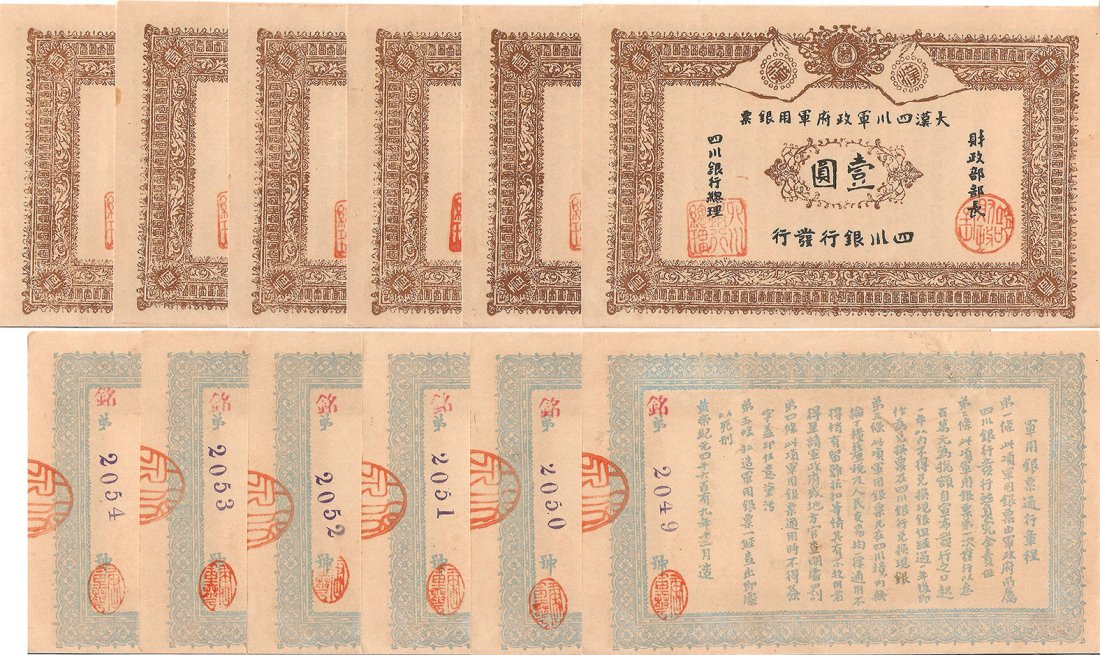 大漢四川軍政府軍用銀票
財政部部長
壹圓
四川銀行總理
四川銀行發行
銘第 2054 號
銘第 2053 號
銘第 2052 號
銘第 2051 號
銘第 2050 號
軍用銀票通行章程
第一條 此項軍用銀票由軍政府飛屬
四川銀行發行 完全責任
第二條 此項軍用銀票第一次發行以叁
百萬元為總額自宣布發行之日起
一年以內不得兌換現銀但經過一年後即
行為兌換票在四川銀行兌換現銀
第三條 此項軍用銀票凡在四川境內無
論丁糧釐稅及人民交易均一律通用不
得稍有習難折扣等情其有不收用者
得呈請軍政府或地方官查明處罰
第四條 此項軍用銀票通用時不得簽
字蓋印任意塗污
第五條 私造軍用銀票一經查出即處
以死刑
黃帝紀元四千六百有九年十二月造
銘第 2049 號